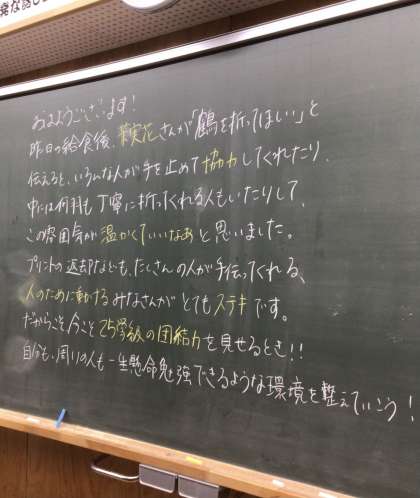 発な話し
おはようございます!
昨日の給食後、 さんが「鶴を折ってほしい」と
伝えると、いろんな人が手を止めて協力してくれたり、
中には何羽も丁寧に折ってくれる人もいたりして、
この雰囲気が温かくていいなあと思いました。
プリントの返却なども、たくさんの人が手伝ってくれる、
人のために動けるみなさんがとてもステキです。
だからこそ、今こそ25学級の団結力を見せるとき!!
自分も、周りの人も一生懸命勉強できるような環境を整えていこう!